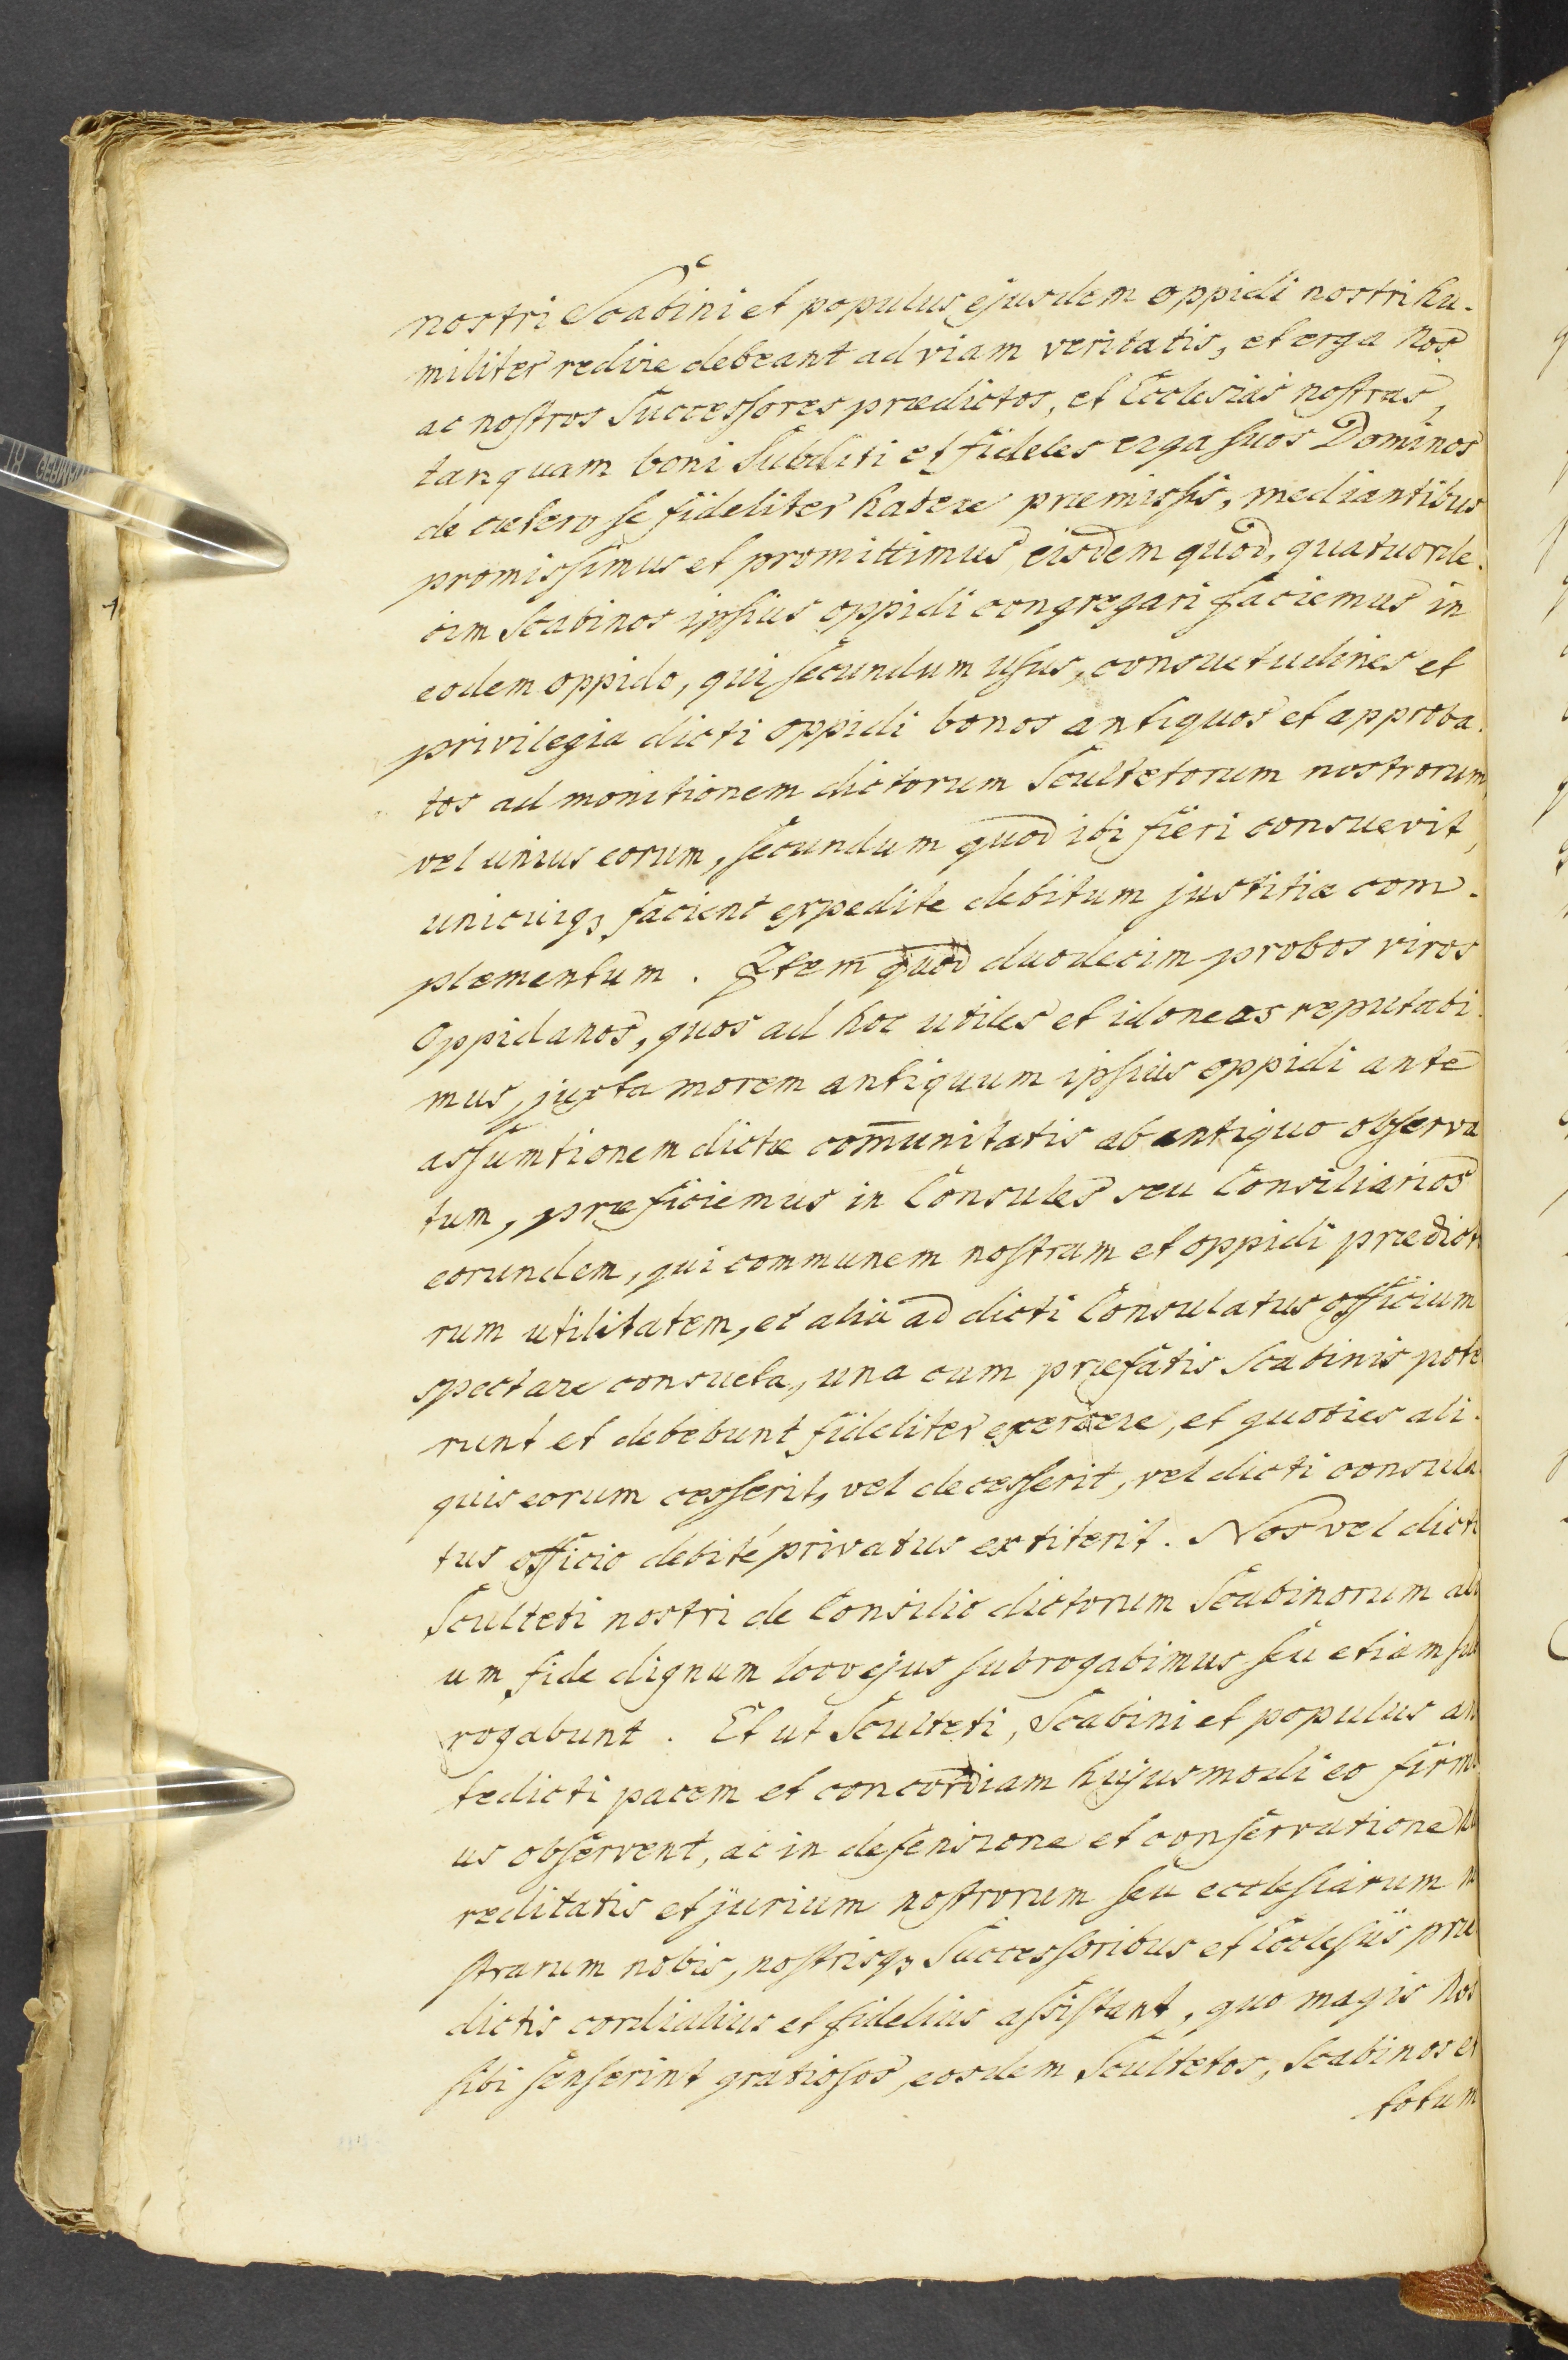 nostri Scabini et populus ejusdem oppidi nostri hu-
militer redire debeant ad viam veritatis, et erga Nos
ac nostros Successores prædictos, et Ecclesias nostras,
tanquam boni Subditi et fideles erga suos Dominos
de cætero se fideliter habere præmissis, mediantibus
promissimus et promittimus eisdem quod, quatuorde-
cim Scabinos ipsius oppidi congregari faciemus in
eodem oppido, qui secundum usus, consuetudines et
privilegia dicti oppidi bonos antiquos et approba-
tos ad monitionem dictorum Scultetorum nostrorum
vel unius eorum, secundum quod ibi fieri consuevit,
unicuiq3 facient expedite debitum justitiæ com-
plementum. Item quod duodecim probos viros
Oppidanos, quos ad hoc utiles et idoneos reputabi-
mus, juxta morem antiquum ipsius oppidi ante
assumtionem dictæ com̄unitatis ab antiquo observa
tum, præficiemus in Consules seu Consiliarios
eorundem, qui communem nostram et oppidi prædict
rum utilitatem, et alia ad dicti Consulatus officium
spectare consueta, una cum præfatis Scabinis pote
runt et debebunt fideliter exercere, et quoties ali-
quis eorum cesserit, vel decesserit, vel dicti consula
tus officio debité privatus extiterit. Nos vel dicti
Sculteti nostri de Consilio dictorum Scabinorum ali
um fide dignum loco ejus subrogabimus seu etiam sub
rogabunt. Et ut Sculteti, Scabini et populus an
tedicti pacem et concordiam hujusmodi eo firmi
us observent, ac in defensione et conservatione hæ
reditatis et jurium nostrorum seu ecclesiarum no
strarum nobis, nostrisq3 Successoribus et Ecclesiis præ
dictis cordialius et fidelius assistant, quo magis Nos
sibi senserint gratiosos, eosdem Scultetos, Scabinos et
totum